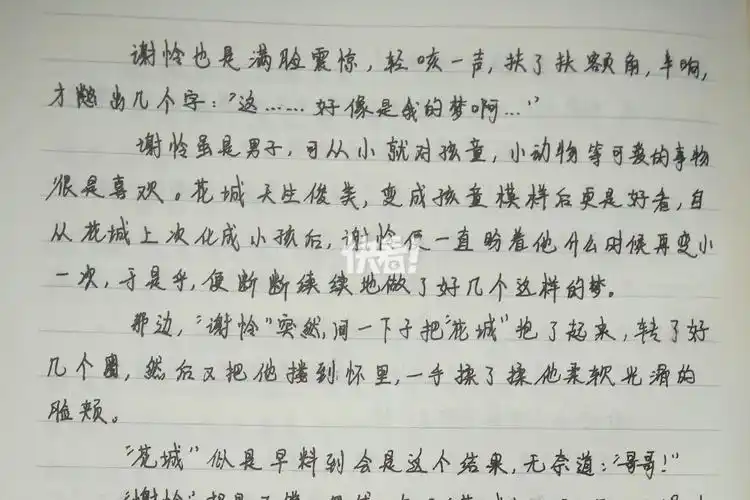 谢怜也是满脸震惊,轻咳一声,扶了扶额角,半晌,
才憋出几个字:“这……好像是我的梦啊…”
谢怜虽是男子,可从小就对孩童,小动物等可爱的事物
很是喜欢。花城天生俊美,变成孩童模样后更是好看,自
从花城上次化成小孩后,谢怜便一直盼着他什么时候再变小
一次,于是乎,便断断续续地做了好几个这样的梦。
快看!
那边,“谢怜”突然间一下子把“花城”抱了起来,转了好
几个圈,然后又把他搂到怀里,一手揉了揉他柔软光滑的
脸颊。
“花城”似是早料到会是这个结果,无奈道:“哥哥!”
“谢怜”